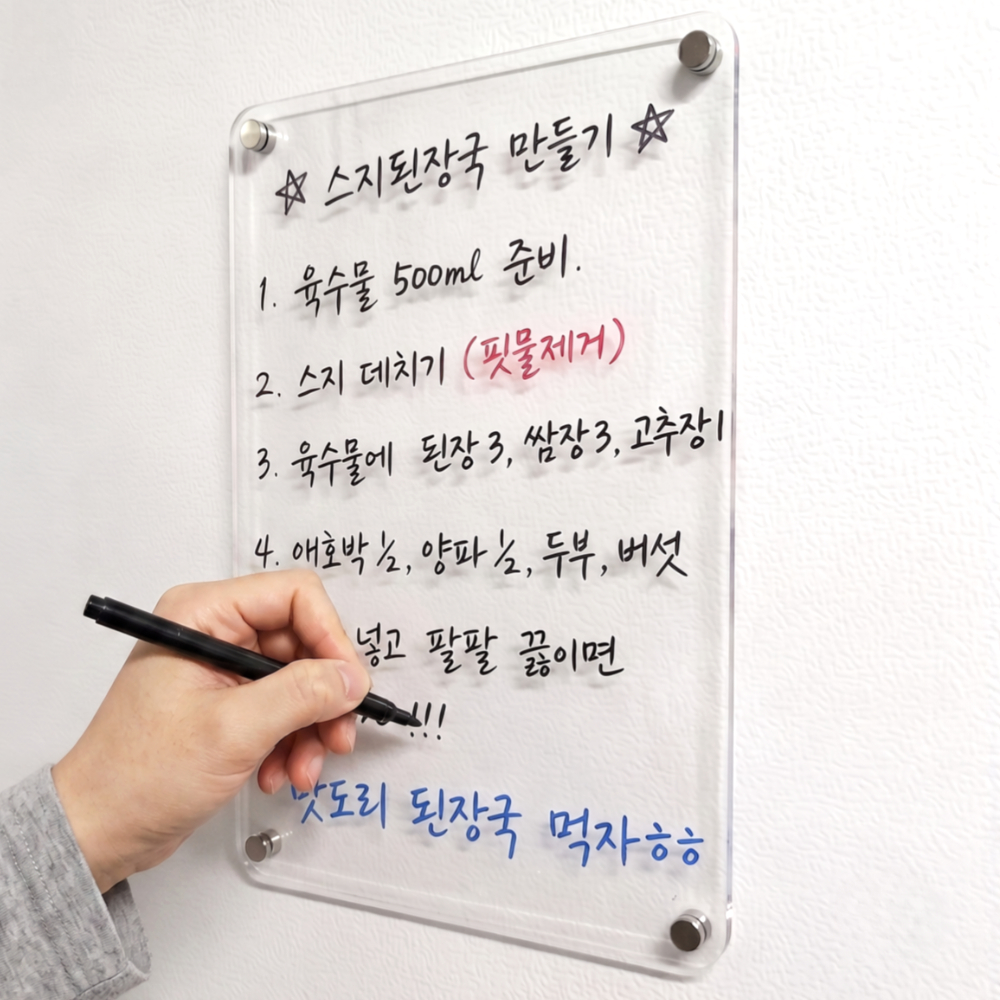 ☆ 스지된장국 만들기 ☆
1. 육수물 500ml 준비.
2. 스지 데치기 (핏물제거)
3. 육수물에 된장 3, 쌈장 3, 고추장 1
4. 애호박 ½, 양파 ½, 두부, 버섯
넣고 팔팔 끓이면
!!!
맛도리 된장국 먹자ㅎㅎ